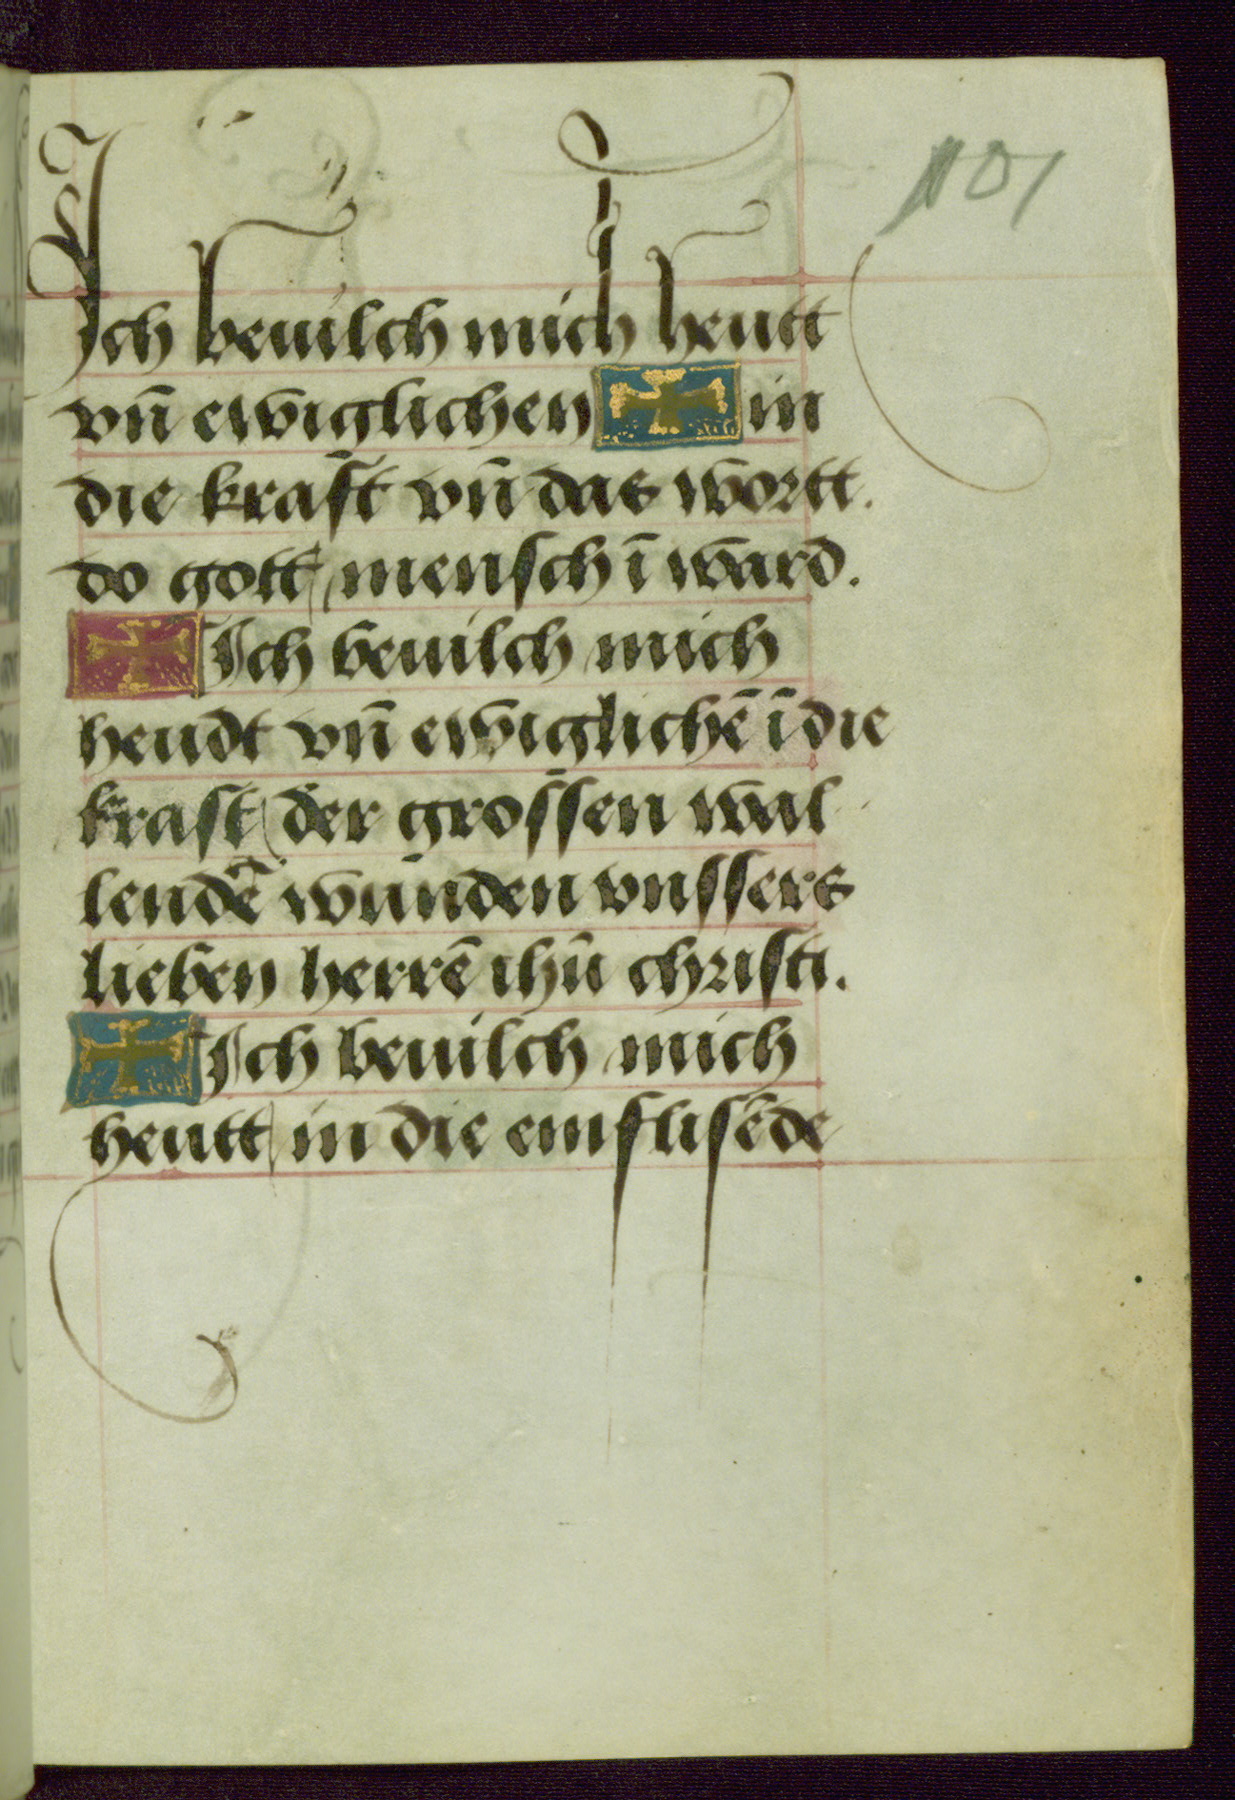 101
Ich beuilch mich heutt
vn̄ ewiglichen ✠ in
die krafft vn̄ das wortt.
do gott mensch ī ward.
✠ Ich beuilch mich
heudt vn̄ ewiglichē ī die
kraft der grossen wal
lendē wunden vnssers
lieben herrē ihū christi.
✠ Ich beuilch mich
heutt in die einflisēde